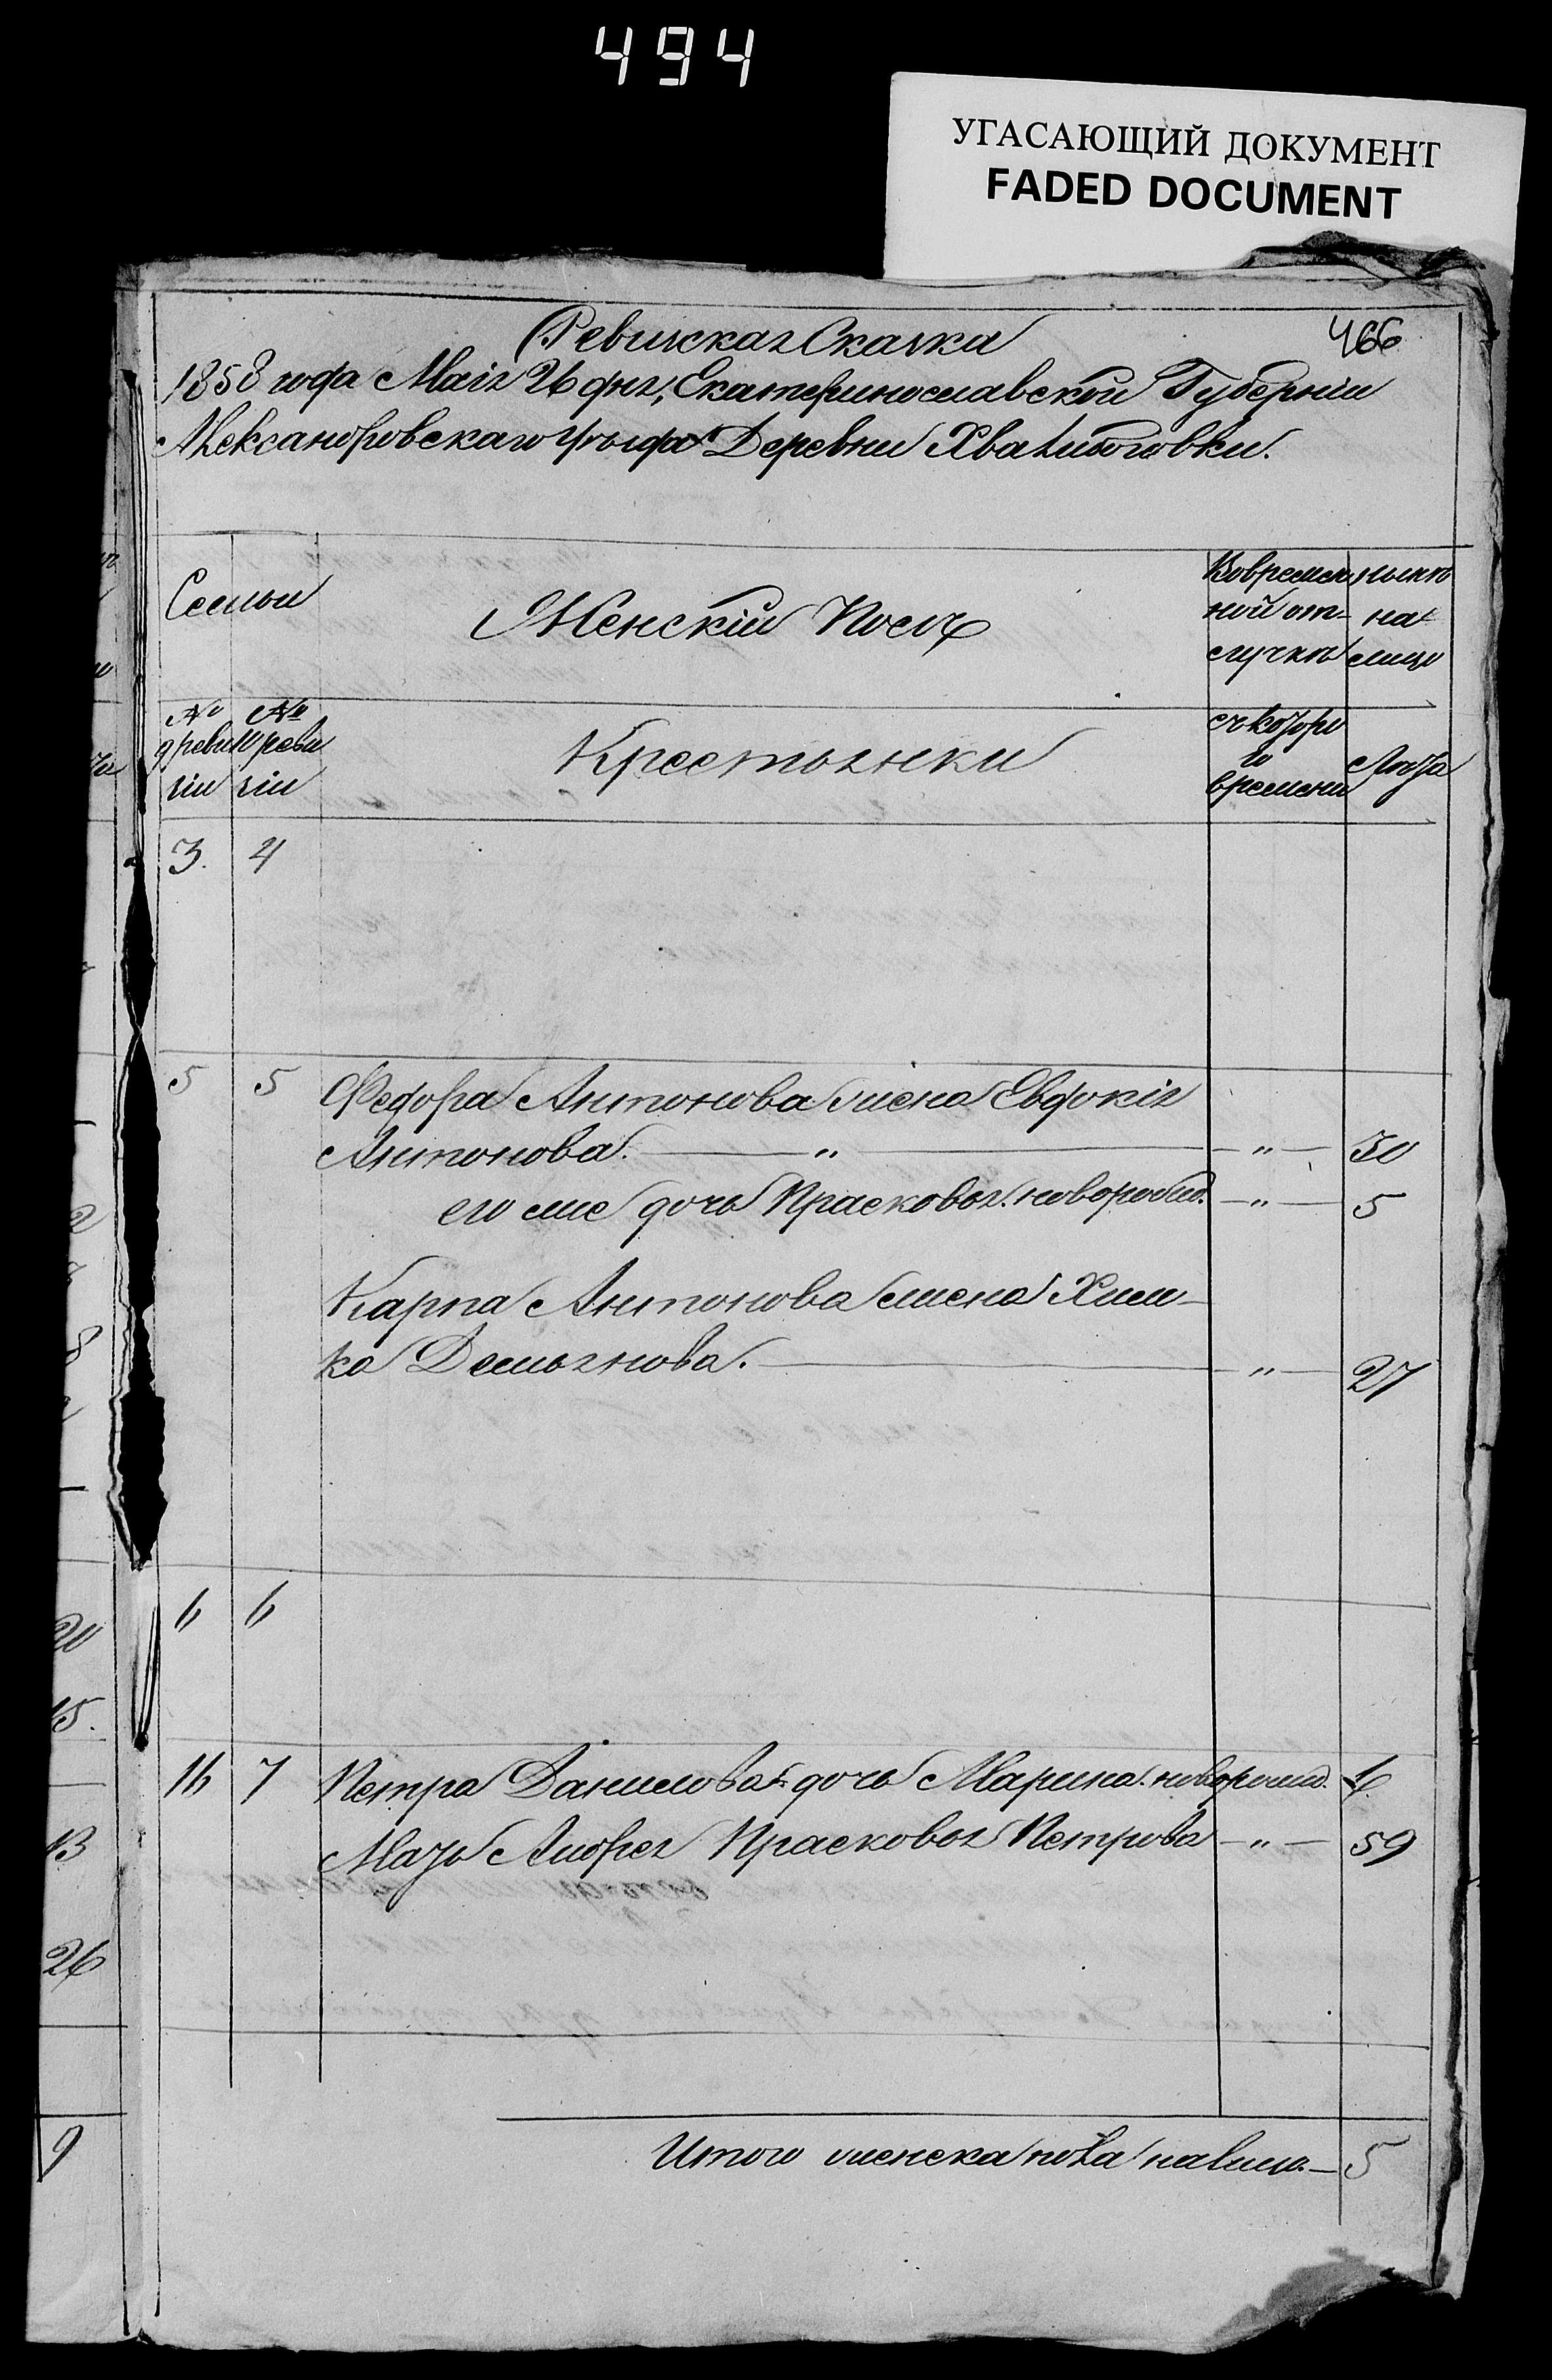 494
УГАСАЮЩИЙ ДОКУМЕНТ
FADED DOCUMENT
466
Ревизская Сказка
1858 года Маія 26 дня, Екатеринославской Губерніи
Александровскаго Уѣзда Деревни
Семьи
Женскій Полъ
Во времен
ной от-
лучкѣ
нынѣ
на
лицо
№ 9 реви зіи
№ 10 реви зіи
Крестьянки
съ котора
го
времени
Лѣта
3. 4
5 5 Федора Антонова жена Евдокія
Антонова. — „ — „ — 30
его же дочь Прасковья. новорожд. — „ — 5
Карпа Антонова жена Хим-
ка Демьянова. — „ — 27
6 6
16 7 Петра Данилова дочь Марина. новорожд. 6.
Мать Андрея Прасковья Петрова — „ — 59
Итого женска пола налицо. — 5
20
15.
13
26
9